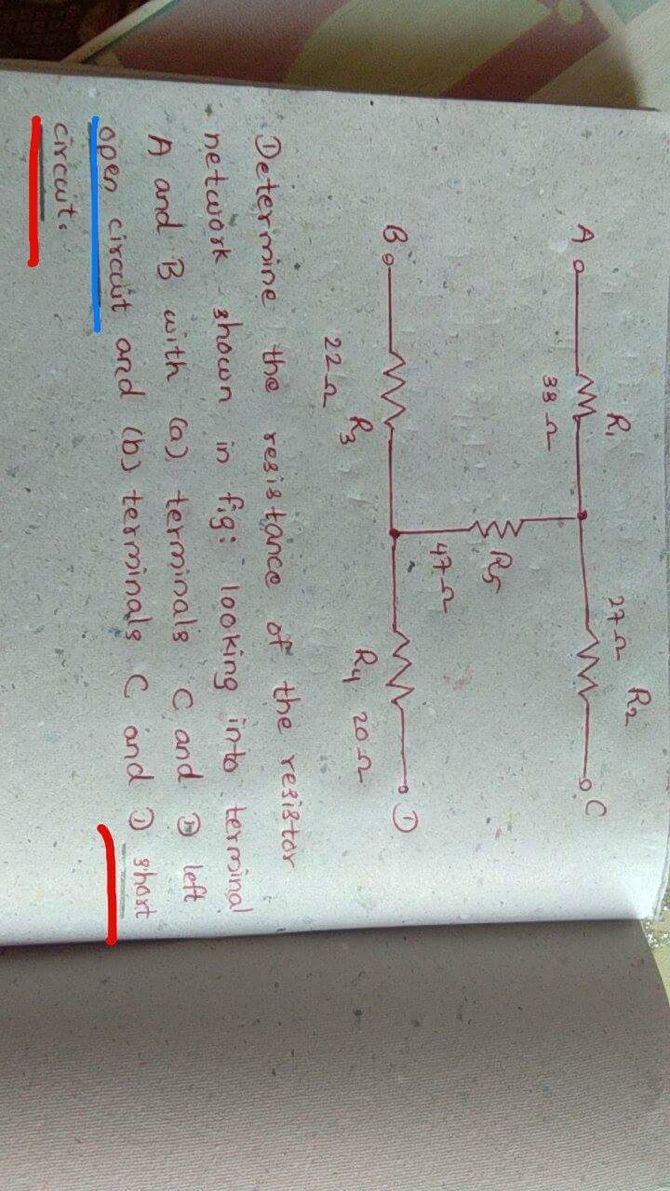 A
R1
33 Ω
27 Ω
R2
C
R5
47 Ω
B
22 Ω
R3
R4
20 Ω
D
Determine the resistance of the resistor
network shown in fig: looking into terminal
A and B with (a) terminals C and D left
open circuit and (b) terminals C and D short
circuit.